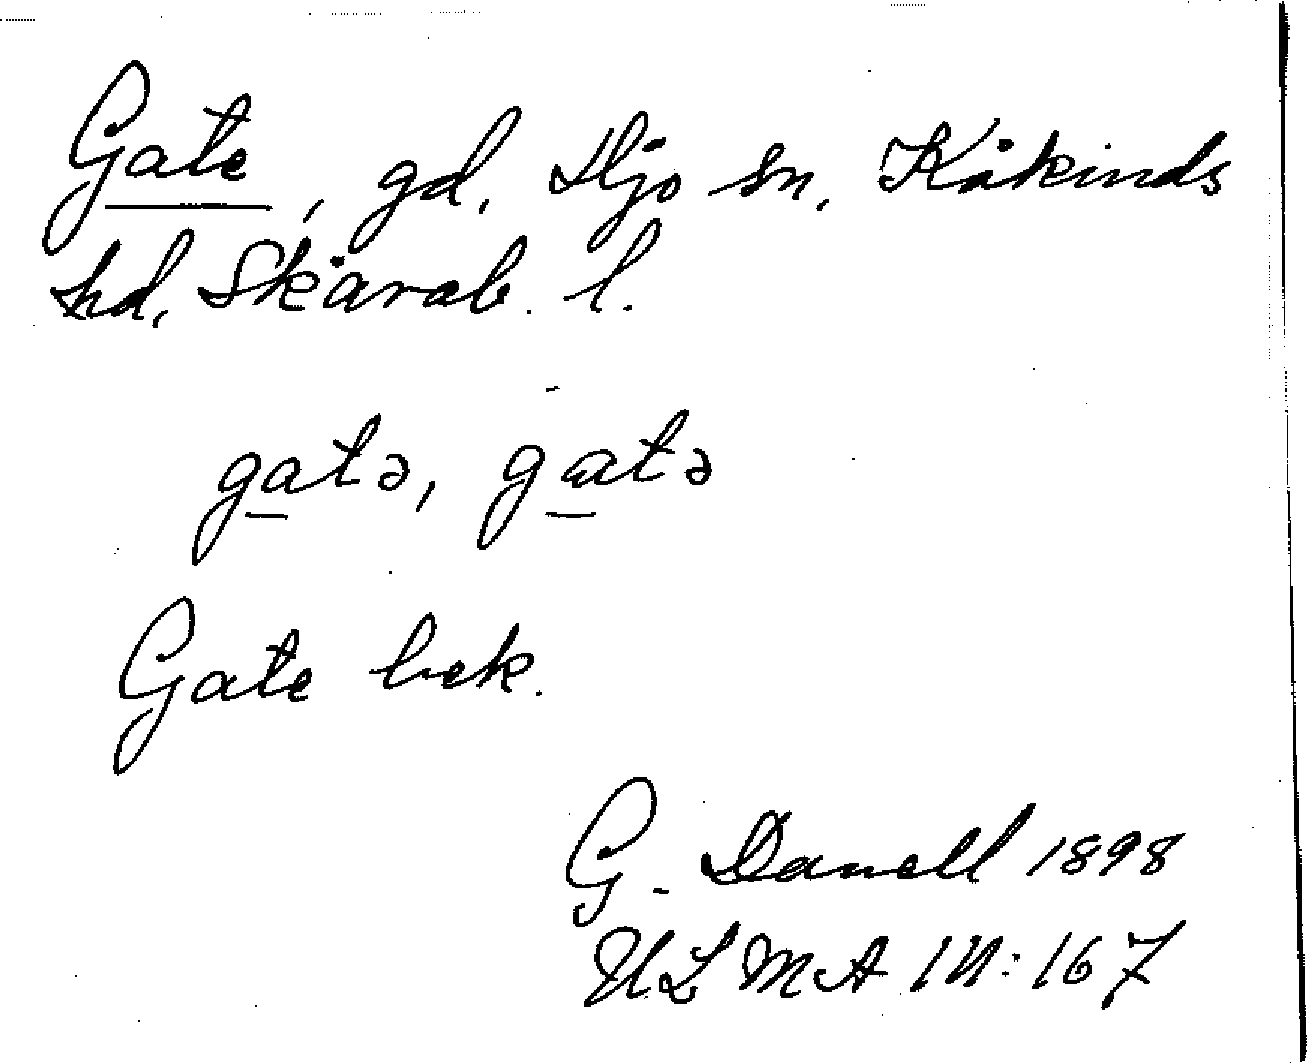 Gate, gd, Hjo sn, Kåkinds
hd, Skarab. l.
gatə, gatə
Gate bek.
G. Danell 1898
ULMA 111:167